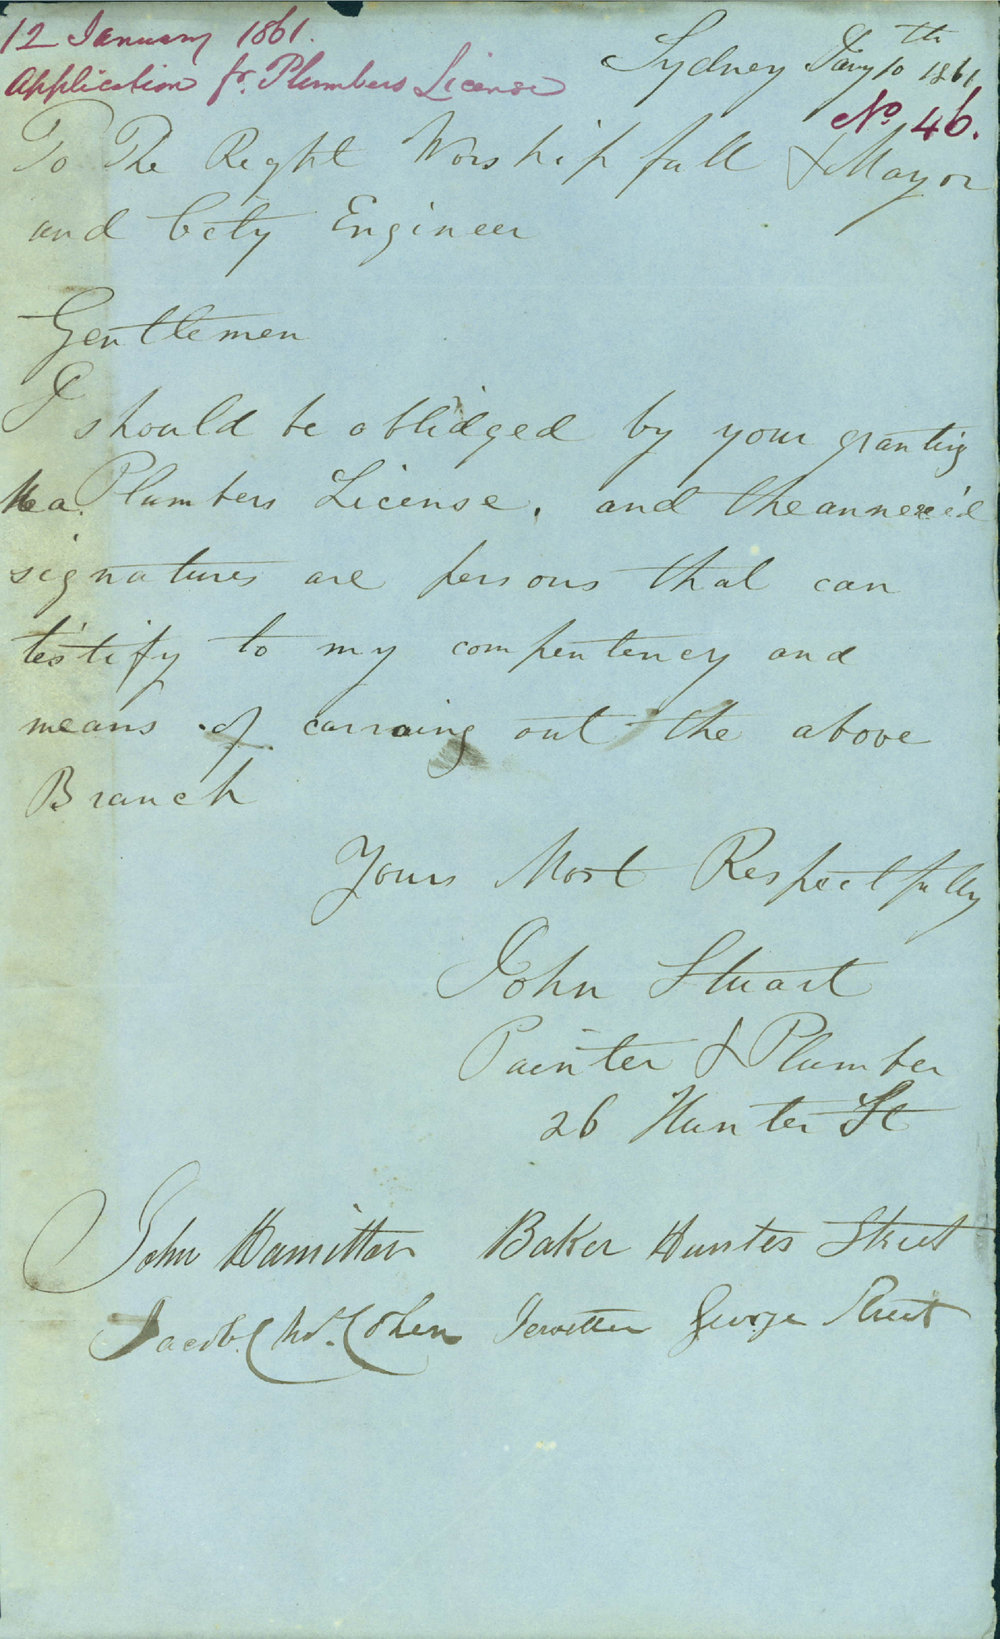 12 January 1861.
Application fr. Plumbers License
Sydney Jany 10th 1861
No. 46.
To The Right Worshipfull & Mayor
and City Engineer
Gentlemen
I should be oblidged by your granting
Me a Plumbers License. and the annexe'd
signatures are persons that can
testify to my compentency and
means of carraing out the above
Branch
Yours Most Respectfully
John Stuart
Painter & Plumber
26 Hunter St
John Hamilton Baker Hunter Street
Jacob Cohen Jeweller George Street